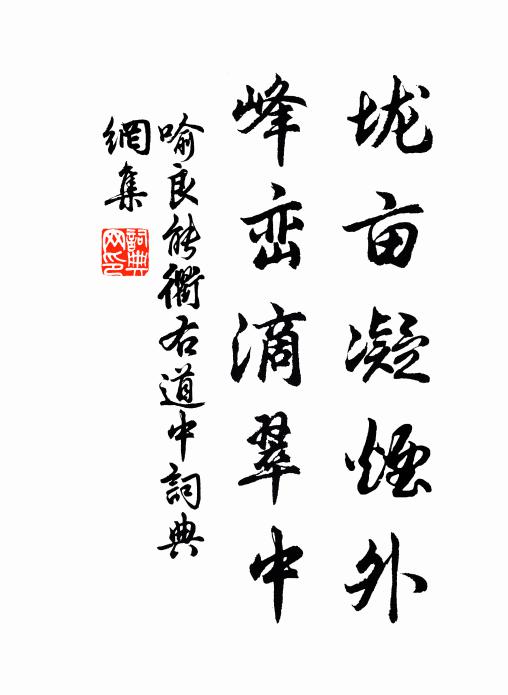 垅亩凝烟外
峰峦滴翠中
喻良能衢右道中詞典
網集
詞典
网印